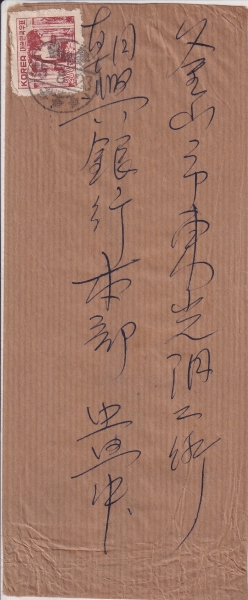 釜山市東光洞二街
朝興銀行本部 貴中
KOREA